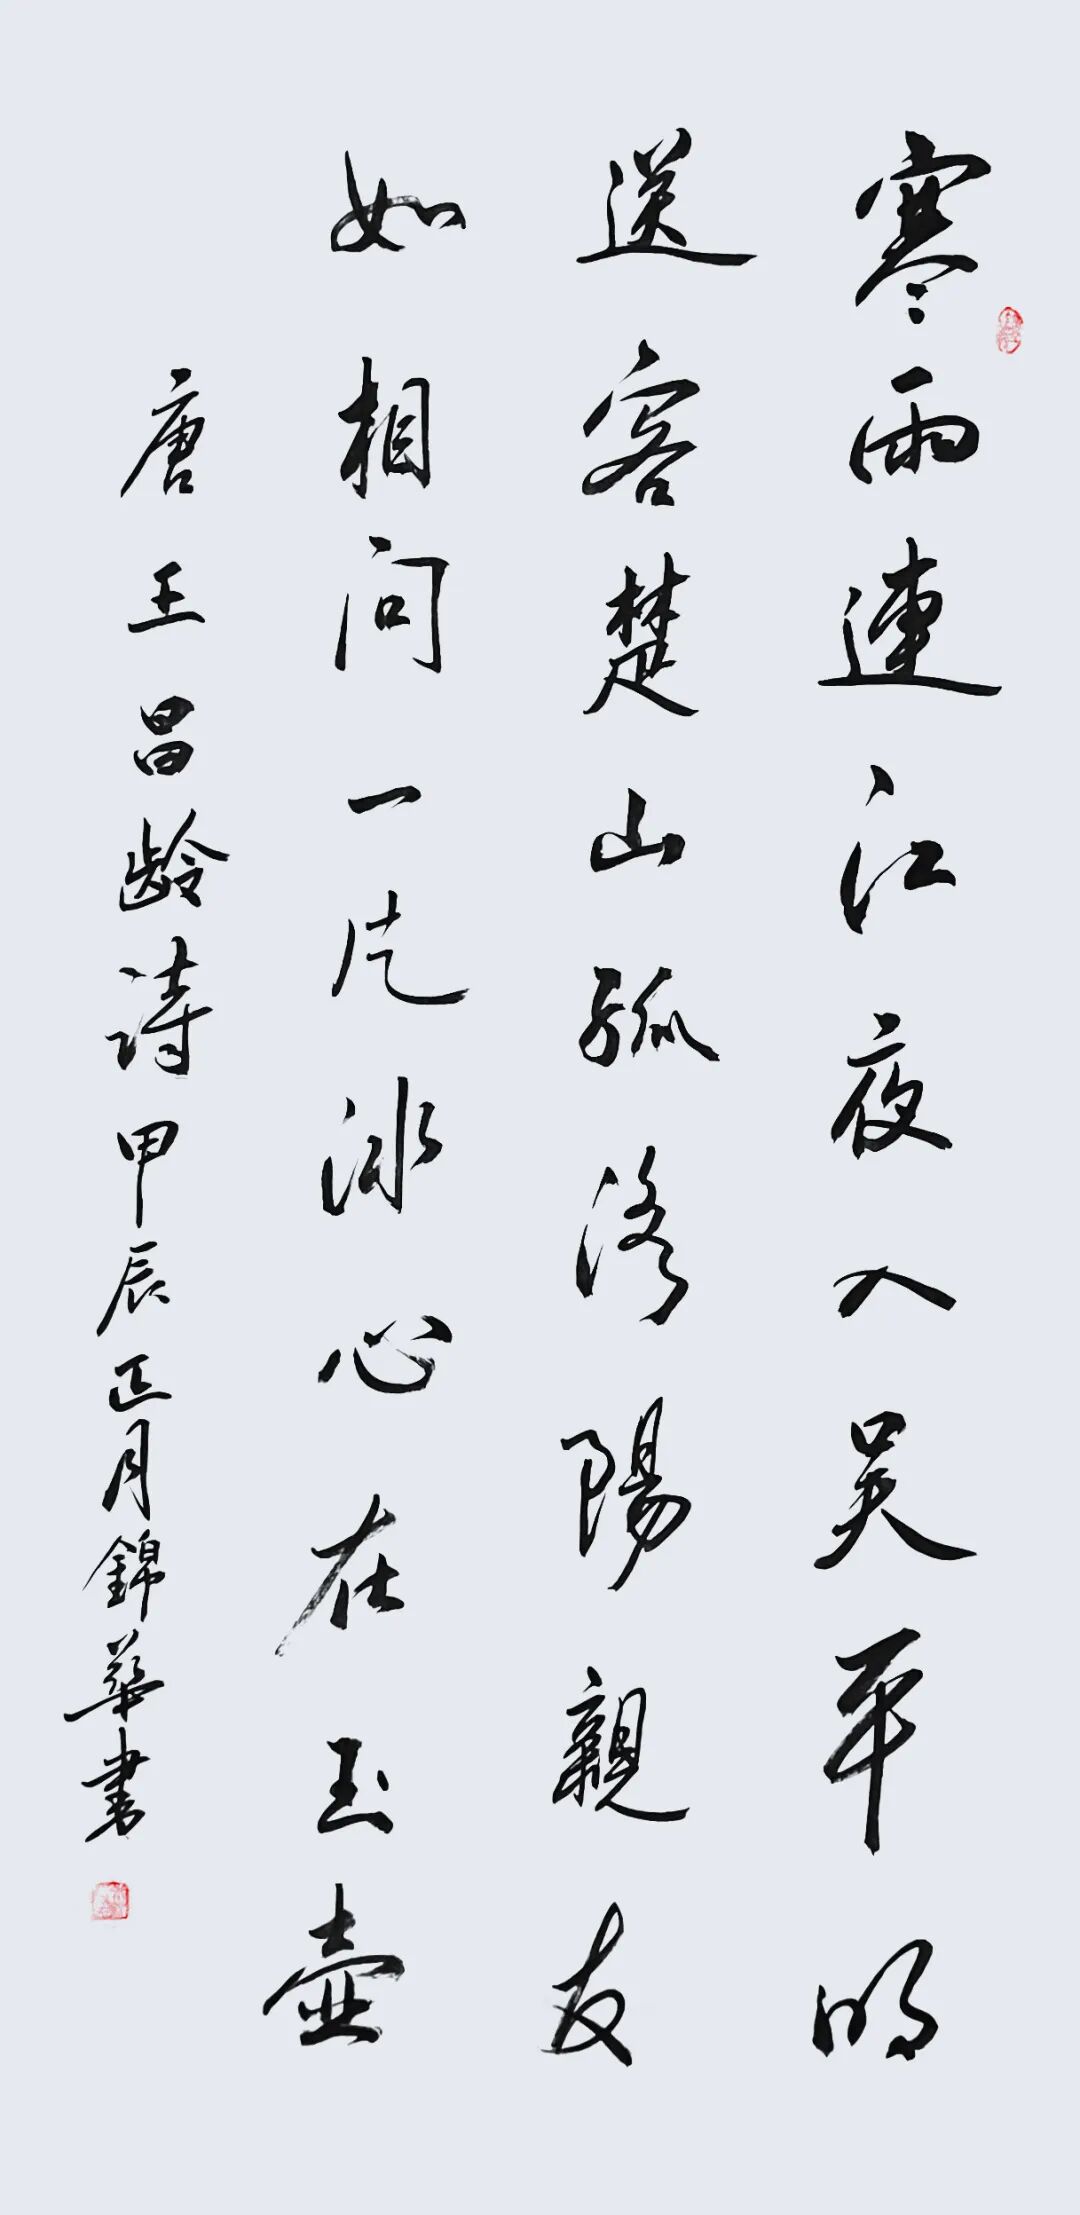 寒雨連江夜入吴平明
送客楚山孤洛陽親友
如相问一片冰心在玉壺
唐王昌龄詩甲辰正月錦華書